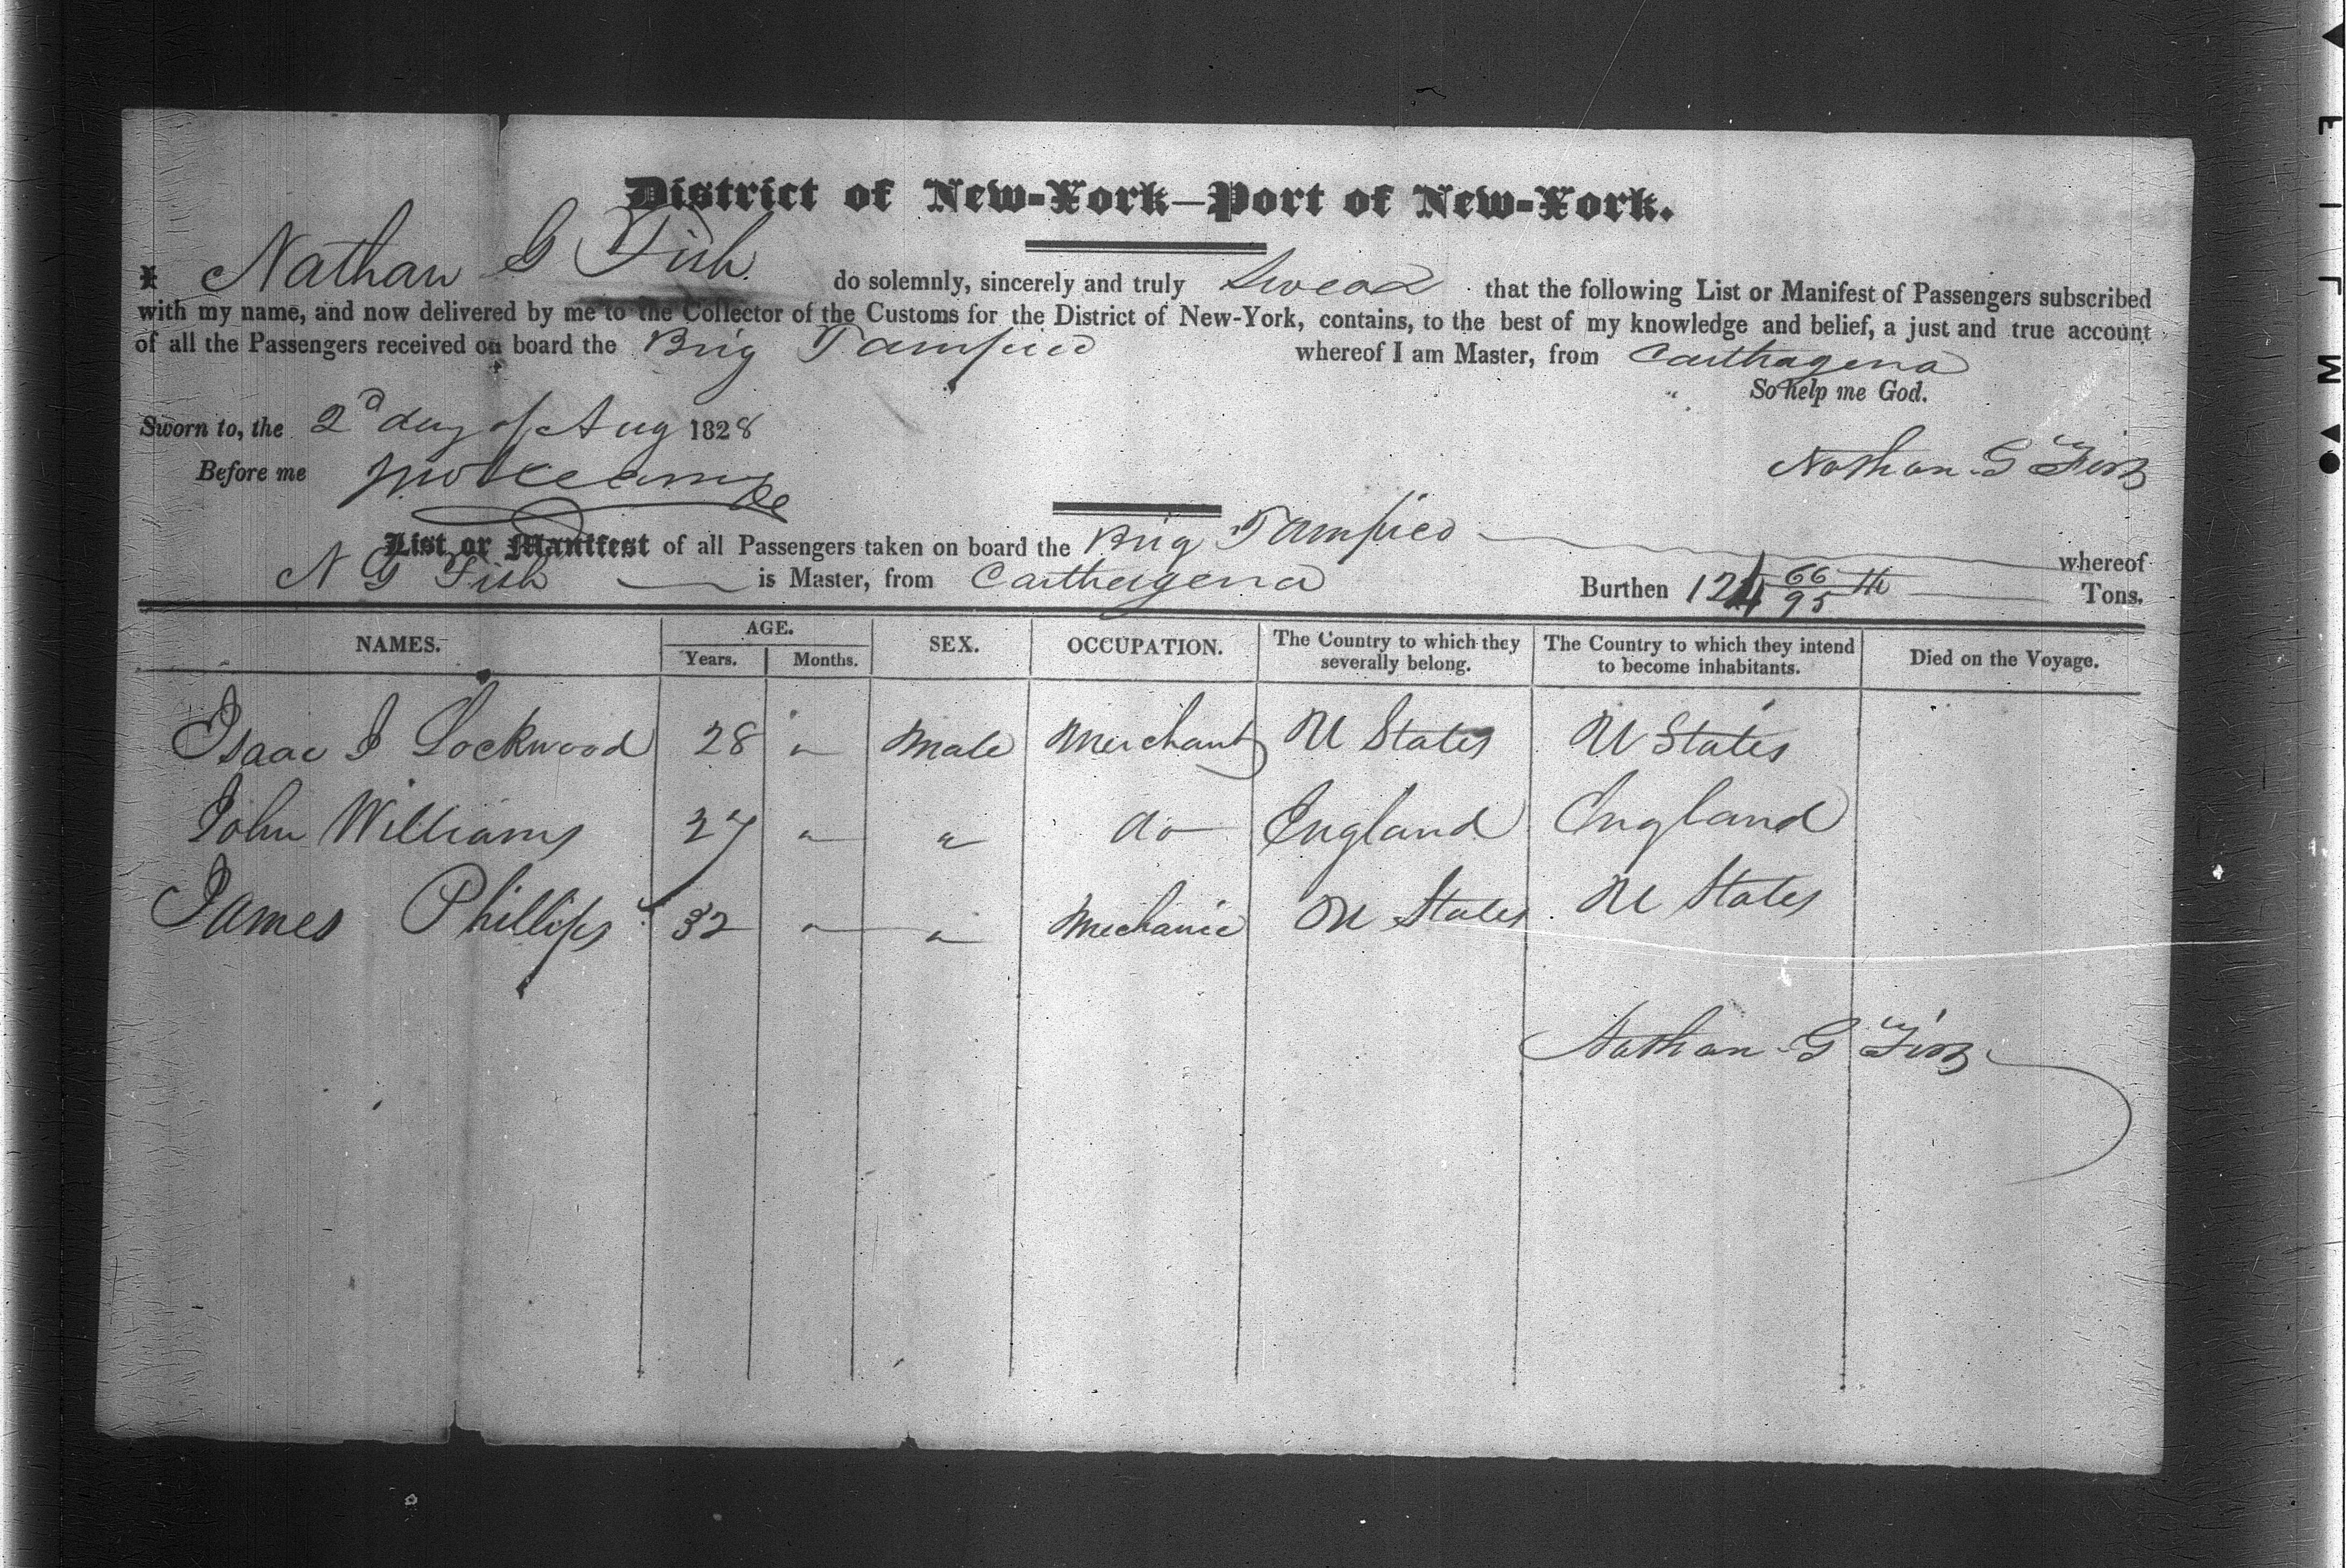 District of New-York—Port of New-York.
I Nathan G Fish do solemnly, sincerely and truly Swear that the following List or Manifest of Passengers subscribed
with my name, and now delivered by me to the Collector of the Customs for the District of New-York, contains, to the best of my knowledge and belief, a just and true account
of all the Passengers received on board the Brig Tampico whereof I am Master, from Carthagena
So help me God.
Sworn to, the 2d day of Aug 1828
Nathan G Fish
Before me
List or Manifest of all Passengers taken on board the Brig Tampico whereof
N G Fish is Master, from Carthagena Burthen 124 66/95 th Tons.
NAMES. AGE. Years. Months. SEX. OCCUPATION. The Country to which they severally belong. The Country to which they intend to become inhabitants. Died on the Voyage.
Isaac J Lockwood 28 " Male Merchant U States U States
John Williams 27 " " do England England
James Phillips 32 " " Mechanic U States U States
Nathan G Fish
FILM